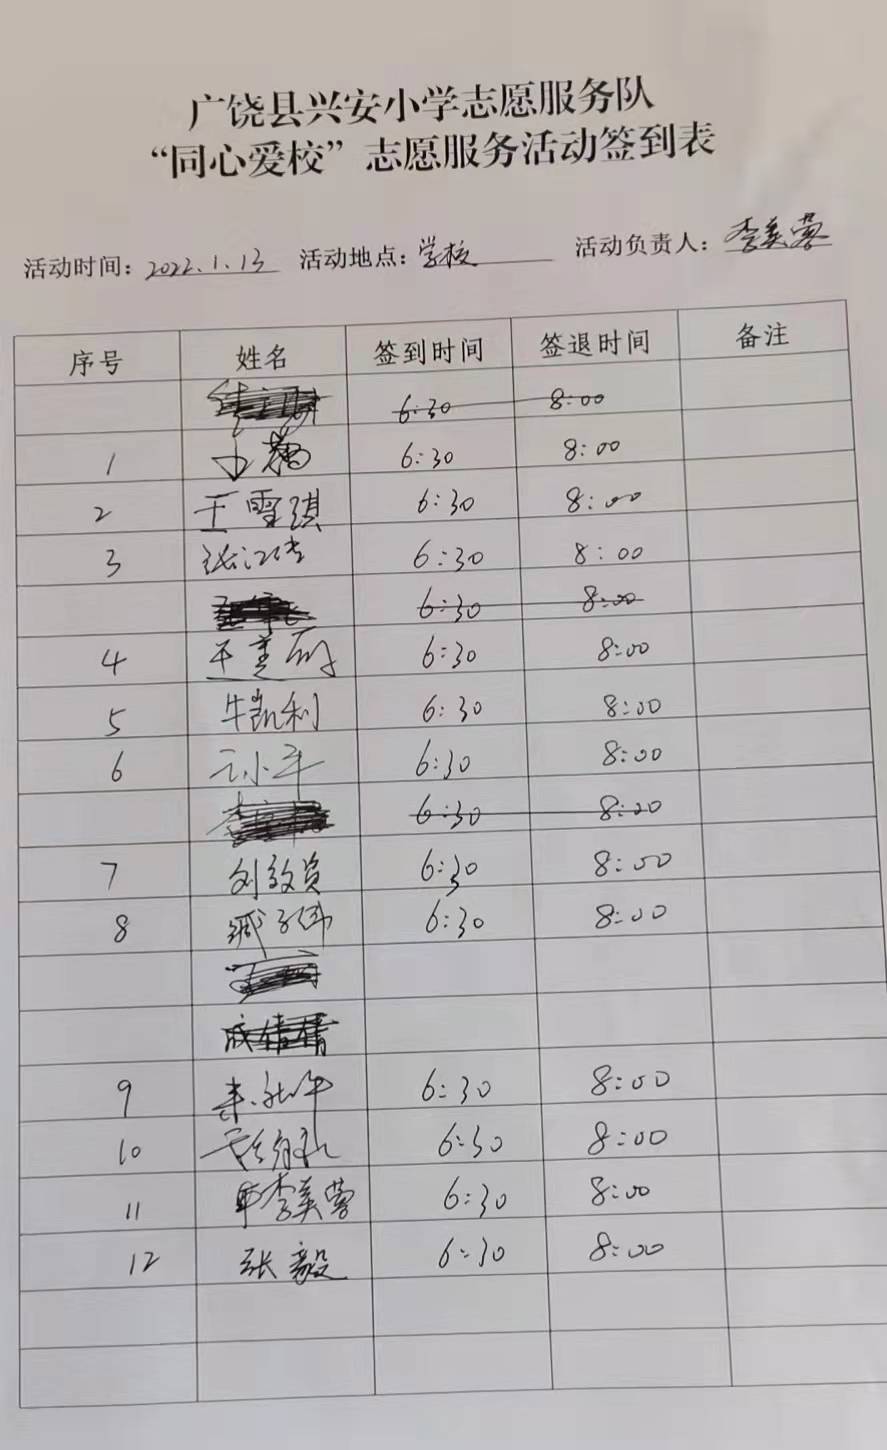 广饶县兴安小学志愿服务队
“同心爱校”志愿服务活动签到表
活动时间：2022.1.13 活动地点：学校 活动负责人：李美蓉
序号 姓名 签到时间 签退时间 备注
6:30 8:00
1 6:30 8:00
2 王雪琪 6:30 8:00
3 6:30 8:00
6:30 8:00
4 王美丽 6:30 8:00
5 牛凯利 6:30 8:00
6 小平 6:30 8:00
6:30 8:00
7 刘效贤 6:30 8:00
8 臧子伟 6:30 8:00
成倩倩
9 6:30 8:00
10 6:30 8:00
11 李美蓉 6:30 8:00
12 张毅 6:30 8:00